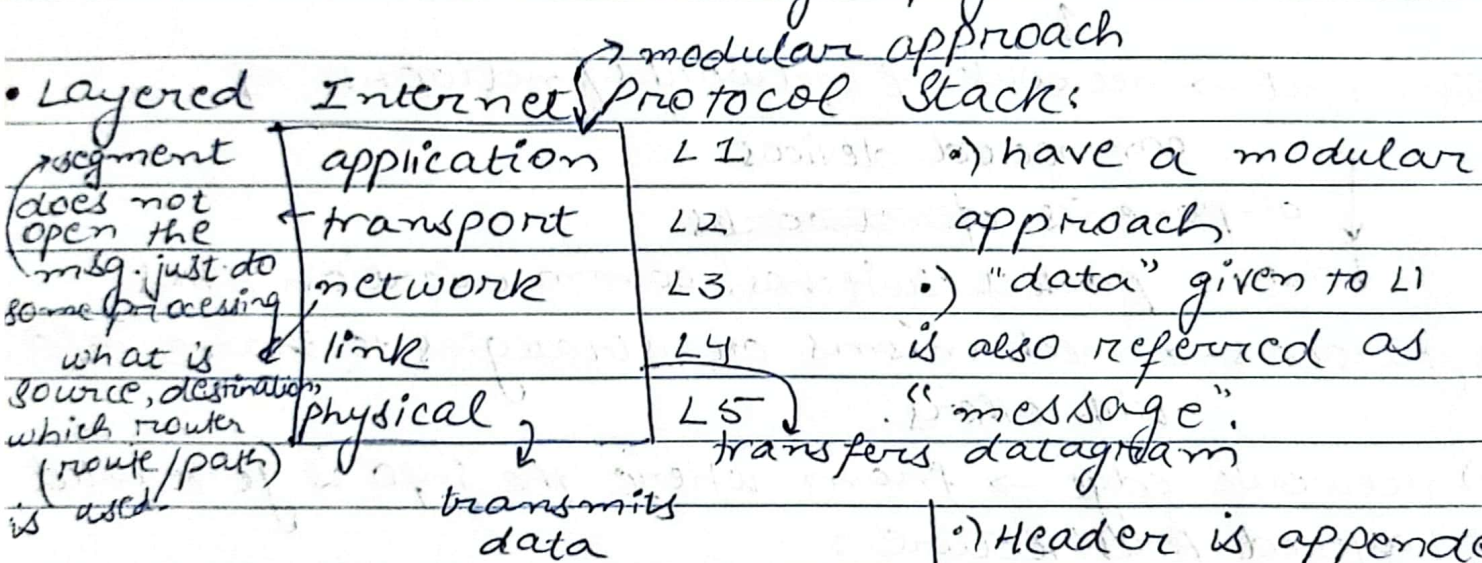 → modular approach
• Layered Internet Protocol Stack:
segment
does not
open the
msg. just do
some processing
what is
source, destination,
which router
(route/path)
is used.
application L1
transport L2
network L3
link L4
physical L5
transmits
data
transfers datagram
•) have a modular
approach
•) "data" given to L1
is also referred as
"message".
•) Header is appende